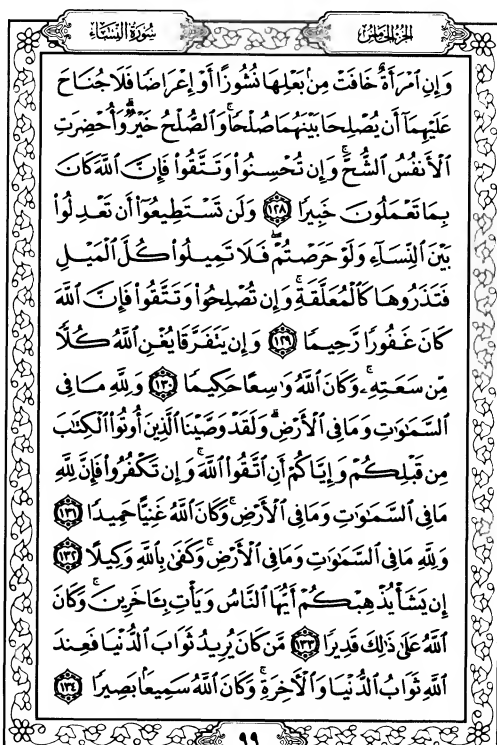 سُورَةُ النِّسَاءِ
الجُزْءُ الخَامِسُ
وَإِنِ ٱمْرَأَةٌ خَافَتْ مِنۢ بَعْلِهَا نُشُوزًا أَوْ إِعْرَاضًا فَلَا جُنَاحَ
عَلَيْهِمَآ أَن يُصْلِحَا بَيْنَهُمَا صُلْحًا ۚ وَٱلصُّلْحُ خَيْرٌ ۗ وَأُحْضِرَتِ
ٱلْأَنفُسُ ٱلشُّحَّ ۚ وَإِن تُحْسِنُوا۟ وَتَتَّقُوا۟ فَإِنَّ ٱللَّهَ كَانَ
بِمَا تَعْمَلُونَ خَبِيرًا ١٢٨ وَلَن تَسْتَطِيعُوٓا۟ أَن تَعْدِلُوا۟
بَيْنَ ٱلنِّسَآءِ وَلَوْ حَرَصْتُمْ ۖ فَلَا تَمِيلُوا۟ كُلَّ ٱلْمَيْلِ
فَتَذَرُوهَا كَٱلْمُعَلَّقَةِ ۚ وَإِن تُصْلِحُوا۟ وَتَتَّقُوا۟ فَإِنَّ ٱللَّهَ
كَانَ غَفُورًا رَّحِيمًا ١٢٩ وَإِن يَتَفَرَّقَا يُغْنِ ٱللَّهُ كُلًّا
مِّن سَعَتِهِۦ ۚ وَكَانَ ٱللَّهُ وَٰسِعًا حَكِيمًا ١٣٠ وَلِلَّهِ مَا فِى
ٱلسَّمَٰوَٰتِ وَمَا فِى ٱلْأَرْضِ ۗ وَلَقَدْ وَصَّيْنَا ٱلَّذِينَ أُوتُوا۟ ٱلْكِتَٰبَ
مِن قَبْلِكُمْ وَإِيَّاكُمْ أَنِ ٱتَّقُوا۟ ٱللَّهَ ۚ وَإِن تَكْفُرُوا۟ فَإِنَّ لِلَّهِ
مَا فِى ٱلسَّمَٰوَٰتِ وَمَا فِى ٱلْأَرْضِ ۚ وَكَانَ ٱللَّهُ غَنِيًّا حَمِيدًا ١٣١
وَلِلَّهِ مَا فِى ٱلسَّمَٰوَٰتِ وَمَا فِى ٱلْأَرْضِ ۚ وَكَفَىٰ بِٱللَّهِ وَكِيلًا ١٣٢
إِن يَشَأْ يُذْهِبْكُمْ أَيُّهَا ٱلنَّاسُ وَيَأْتِ بِـَٔاخَرِينَ ۚ وَكَانَ
ٱللَّهُ عَلَىٰ ذَٰلِكَ قَدِيرًا ١٣٣ مَّن كَانَ يُرِيدُ ثَوَابَ ٱلدُّنْيَا فَعِندَ
ٱللَّهِ ثَوَابُ ٱلدُّنْيَا وَٱلْأَخِرَةِ ۚ وَكَانَ ٱللَّهُ سَمِيعًۢا بَصِيرًا ١٣٤
٩٩